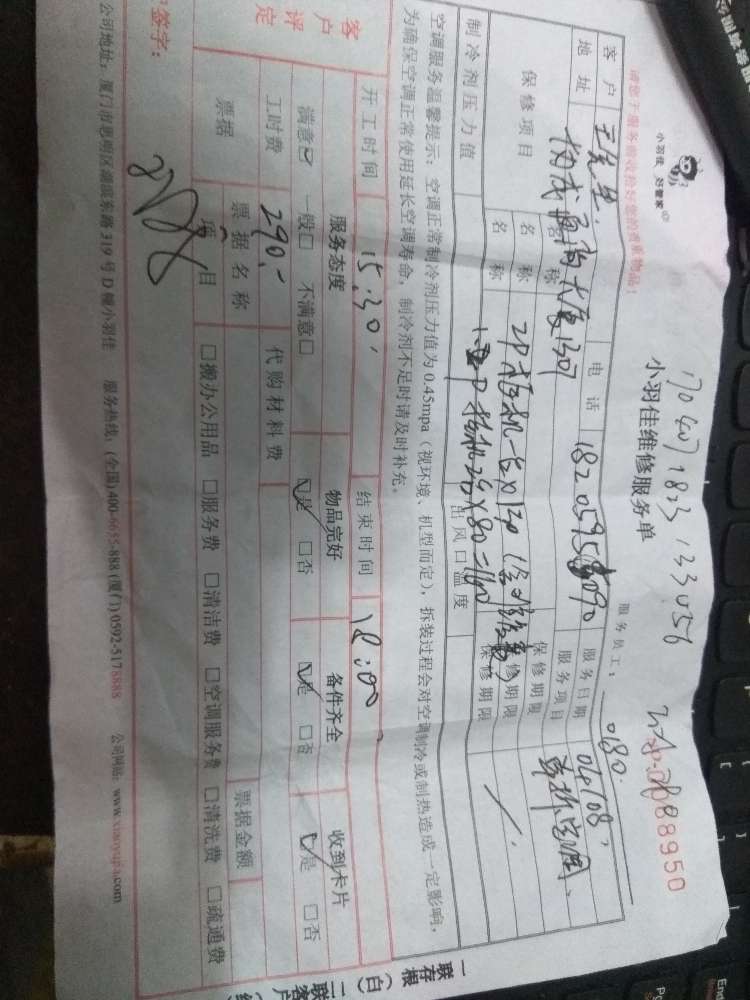 小羽佳 好管家
170407 1823 133056
小羽佳维修服务单
0088950
请您于服务前收拾好您的贵重物品!
服务员工: 0180
客户
电话
服务日期 04/08
地址
服务项目
单拆空调
保修项目
名称
保修期限
名称
保修期限
名称
保修期限
制冷剂压力值
出风口温度
空调服务温馨提示:空调正常制冷剂压力值为0.45mpa(视环境、机型而定),拆装过程会对空调制冷或制热造成一定影响,
为确保空调正常使用延长空调寿命,制冷剂不足时请及时补充。
开工时间 15:30
结束时间 18:00
客户评定
服务态度
物品完好
备件齐全
收到卡片
满意☑ 一般□ 不满意□
☑是 □否
☑是 □否
☑是 □否
工时费 290.-
代购材料费
票据
票据名称
票据金额
项目
□搬办公用品 □服务费 □清洁费 □空调服务费 □清洗费 □疏通费
签字:
公司地址:厦门市思明区湖滨东路319号D幢小羽佳 服务热线:(全国)400-6655-888(厦门)0592-5178888 公司网站:www.xiaoyujia.com
一联存根(白)二联客户